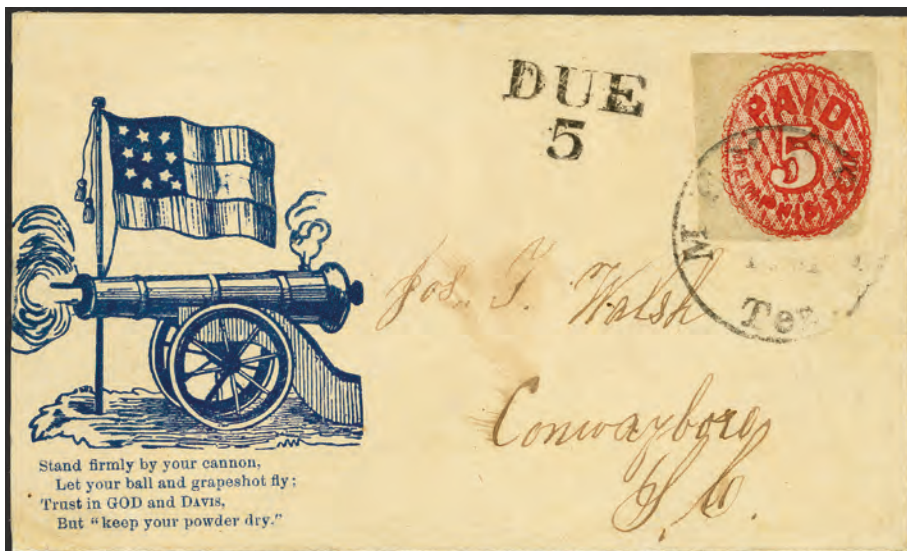 DUE
5
PAID
5
MEMPHIS TEN
M
Ten
Jos. T. Walsh
Conwayboro
S. C.
Stand firmly by your cannon,
Let your ball and grapeshot fly;
Trust in GOD and DAVIS,
But "keep your powder dry."